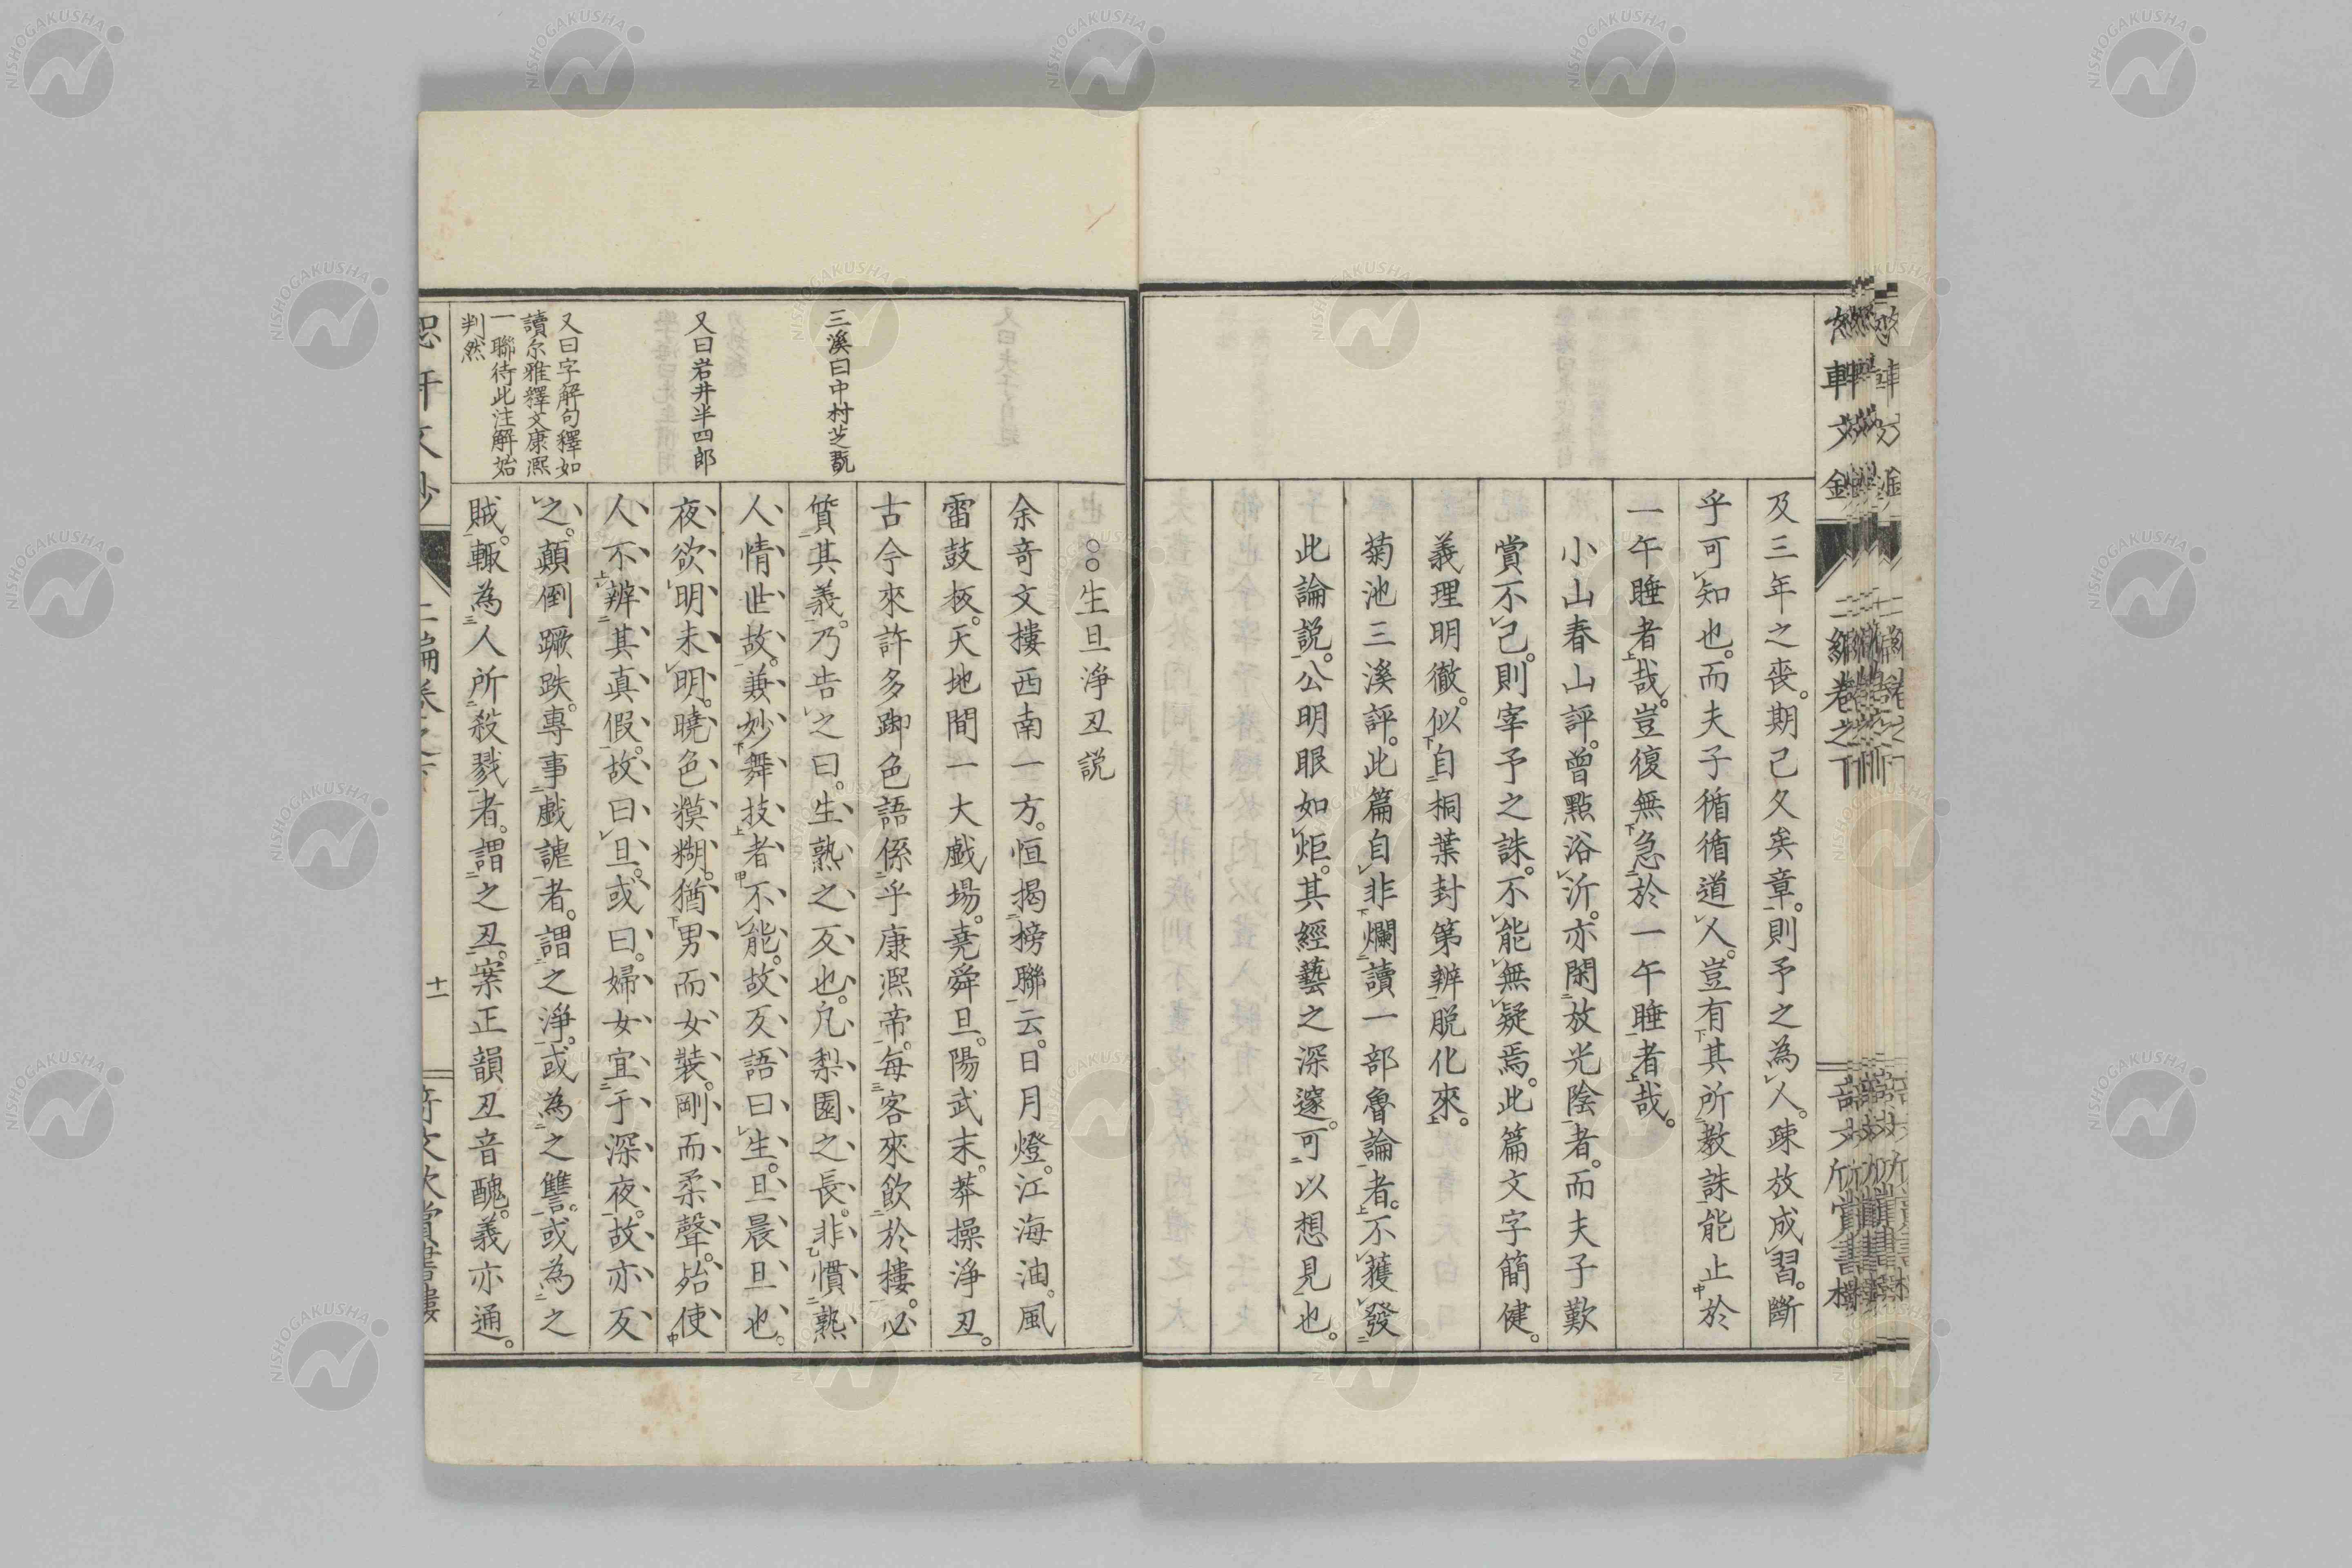 及三年之喪。期已久矣章。則予之為人。疎放成習。斷
乎可知也。而夫子循循道人。豈有其所教誅能止於
一午睡者哉。豈復無急於一午睡者哉。
小山春山評。曽點浴沂。亦閑放光陰者。而夫子歎
賞不已。則宰予之誅。不能無疑焉。此篇文字簡健。
義理明徹。似自桐葉封第辨脱化來。
菊池三溪評。此篇自非爛讀一部魯論者。不獲發
此論説。公明眼如炬。其經藝之深邃。可以想見也。
三溪曰中村芝翫
又曰岩井半四郎
又曰字解句釋如
讀尔雅釋文康熙
一聯待此注解始
判然
○○生旦淨丑説
余奇文樓西南一方。恒揭榜聯云。日月燈。江海油。風
雷鼓板。天地間一大戯場。堯舜旦。陽武末。莽操淨丑。
古今來許多脚色語係乎康熙帝。毎客來飲於樓。必
質其義。乃告之曰。生熟之反也。凡梨園之長。非慣熟
人情世故。兼妙舞技者不能。故反語曰生。旦晨旦也。
夜欲明未明。曉色糢糊。猶男而女裝。剛而柔聲。殆使
人不辨其真假。故曰旦。或曰。婦女宜于深夜。故亦反
之。顛倒蹶跌。專事戯謔者。謂之淨。或為之讐。或為之
賊。輙為人所殺戮者。謂之丑。案正韻丑音醜。義亦通。
十一